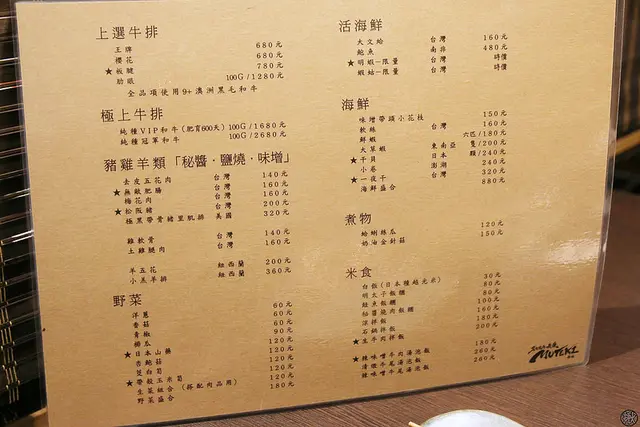 上選牛排
王牌 680元
櫻花 680元
★板腱 780元
肋眼 100G/1280元
全品項使用9+澳洲黑毛和牛
極上牛排
純種VIP和牛(肥育600天) 100G/1680元
純種冠軍和牛 100G/2680元
豬雞羊類「秘醬·鹽燒·味增」
去皮五花肉 台灣 140元
★無敵肥腸 台灣 160元
梅花肉 台灣 160元
★松阪豬 台灣 200元
極黑帶骨豬里肌排 美國 320元
雞軟骨 台灣 140元
土雞腿肉 台灣 160元
羊五花 紐西蘭 200元
小羔羊排 紐西蘭 360元
野菜
洋蔥 60元
香菇 60元
青椒 60元
櫛瓜 90元
★日本山藥 120元
杏鮑菇 120元
筊白筍 120元
★帶殼玉米筍 120元
生菜組合(搭配肉品用) 120元
野菜盛合 180元
活海鮮
大文蛤 台灣 160元
鮑魚 南非 480元
★明蝦-限量 台灣 時價
蝦蛄-限量 台灣 時價
海鮮
味增帶頭小花枝 150元
軟絲 台灣 160元
鮮蝦 六匹/180元
大草蝦 東南亞 隻/200元
★干貝 日本 顆/240元
小卷 澎湖 240元
★一夜干 台灣 320元
海鮮盛合 880元
煮物
蛤蜊絲瓜 120元
奶油金針菇 150元
米食
白飯(日本種越光米) 30元
明太子飯糰 80元
鮭魚飯糰 80元
秘醬燒肉飯糰 100元
涼拌飯 160元
石鍋拌飯 180元
★生牛肉拌飯 200元
★辣味噌牛肉湯泡飯 180元
清燉牛尾湯泡飯 260元
辣味噌牛尾湯泡飯 260元
MUTEKI